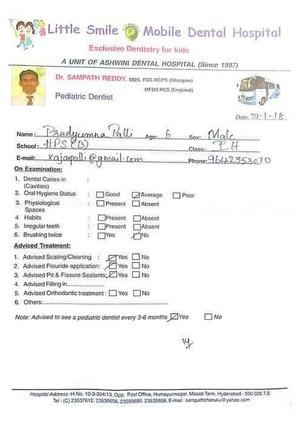 Little Smile Mobile Dental Hospital
Exclusive Dentistry for kids
A UNIT OF ASHWINI DENTAL HOSPITAL (Since 1997)
Dr. SAMPATH REDDY, MDS, FDS RCPS (Glasgow)
MFDS RCS (England)
Pediatric Dentist
Date: 31-1-18
Name: Pradyumna Palli Age: 6 Sex: Male
School: HPS(B) Class:
E-mail: rajapalli@gmail.com Phone: 9642353070
On Examination:
1. Dental Caries in :
(Cavities)
2. Oral Hygiene Status : Good Average Poor
3. Physiological : Present Absent
Spaces
4. Habits : Present Absent
5. Irregular teeth : Present Absent
6. Brushing twice : Yes No
Adviced Treatment:
1. Advised Scaling/Cleaning : Yes No
2. Advised Flouride application: Yes No
3. Advised Pit & Fissure Sealants: Yes No
4. Advised Filling in
5. Advised Orthodontic treatment : Yes No
6. Others:
Note: Advised to see a pediatric dentist every 3-6 months Yes No
Hospital Address :H.No. 10-3-304/13, Opp: Post Office, Humayunnagar, Masab Tank, Hyderabad - 500 028.T.S.
Tel: (C) 23537612, 23536656, 23590690, 23536658. E-mail : sampathchinsku@yahoo.com